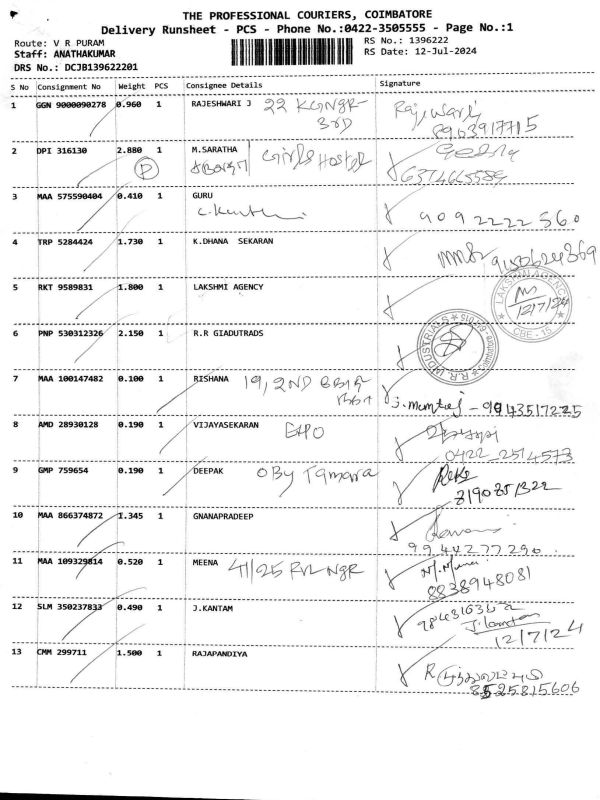 THE PROFESSIONAL COURIERS, COIMBATORE
Delivery Runsheet - PCS - Phone No.:0422-3505555 - Page No.:1
Route: V R PURAM
RS No.: 1396222
Staff: ANATHAKUMAR
RS Date: 12-Jul-2024
DRS No.: DCJB139622201
S No Consignment No Weight PCS Consignee Details Signature
1 GGN 9000090278 0.960 1 RAJESHWARI J 22 KGNGR
3RD
8963917715
2 DPI 316130 2.880 1 M.SARATHA
P Girls Hostel
3 MAA 575590404 0.410 1 GURU
9092222560
4 TRP 5284424 1.730 1 K.DHANA SEKARAN
9150624369
5 RKT 9589831 1.800 1 LAKSHMI AGENCY
LAKSHMI AGENCY
12/7/24
CBE - 15
6 PNP 530312326 2.150 1 R.R GIADUTRADS
R.R. INDUSTRIALS
7 MAA 100147482 0.100 1 RISHANA 19, 2ND
J. mumtaj - 9943517225
8 AMD 28930128 0.190 1 VIJAYASEKARAN
0422-2514573
9 GMP 759654 0.190 1 DEEPAK O By Tamara
10 MAA 866374872 1.345 1 GNANAPRADEEP
9944277290
11 MAA 109329814 0.520 1 MEENA 41/25 RVL NGR
8838948081
12 SLM 350237833 0.490 1 J.KANTAM
12/7/24
13 CMM 299711 1.500 1 RAJAPANDIYA
8525815606